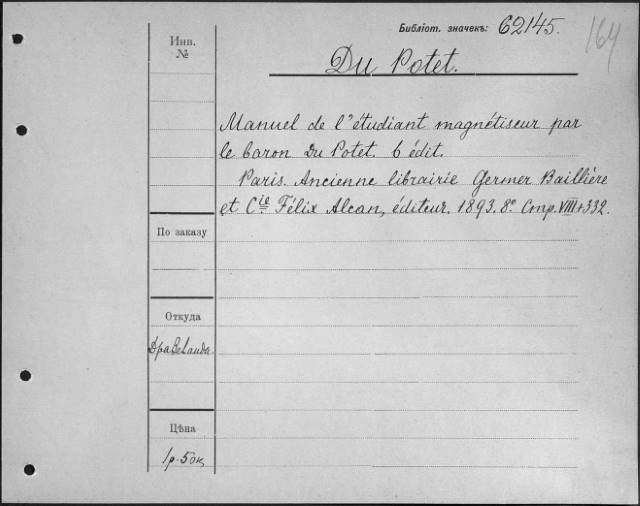 Библіот. значекъ: 62145.
164
Инв.
№
Du Potet.
Manuel de l'étudiant magnétiseur par
le baron Du Potet. 6 édit.
Paris. Ancienne librairie Germer Baillière
et Cie. Félix Alcan, éditeur. 1893. 8º. Стр. VIII+332.
По заказу
Откуда
Д-ра
Цѣна
1р-50к